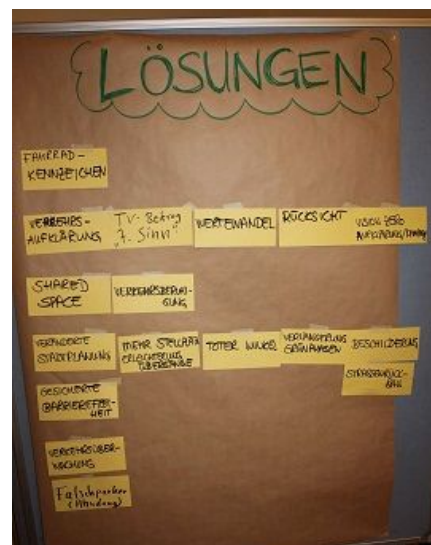 LÖSUNGEN
FAHRRAD-
KENNZEICHEN
VERKEHRS-
AUFKLÄRUNG
TV-Beitrag
"7. Sinn"
WERTEWANDEL
RÜCKSICHT
VISION ZERO
SHARED
SPACE
VERKEHRSBERUHI-
GUNG
VERÄNDERTE
STADTPLANUNG
MEHR
ERLEICHTERUNG
ÜBERGÄNGE
TOTER WINKEL
VERLÄNGERUNG
GRÜNPHASEN
BESCHILDERUNG
STRASSENRÜCK-
BAU
GESICHERTE
BARRIEREFREI-
HEIT
VERKEHRSÜBER-
WACHUNG
Falschparker
(Ahndung)